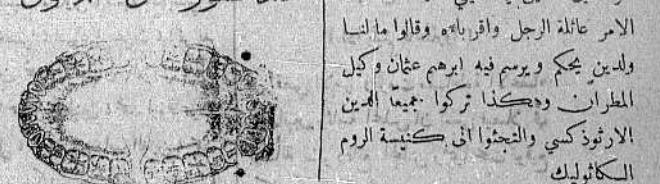 الامر عائلة الرجل واقرباءه وقالوا ما لنا
ولدين يحكم ويرسم فيه ابرهم عثمان وكيل
المطران وهكذا تركوا جميعًا الدين
الارثوذكسي والتجئوا الى كنيسة الروم
الكاثوليك